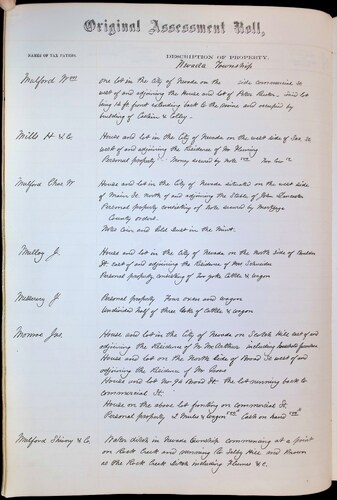 Original Assessment Roll,
NAMES OF TAX PAYERS.
DESCRIPTION OF PROPERTY.
Nevada Township
Mulford Wm
One lot in the City of Nevada on the side commercial St
west of and adjoining the House and lot of Peter said lot
being 14 ft front extending back to the and occupied by
building of &
Mills H. & Co
House and lot in the City of Nevada on the west side of
west of and adjoining the Residence of Mr
Personal property. Money secured by note
Mulford Chas W
House and lot in the City of Nevada situated on the west side
of Main St. north of and adjoining the of John
Personal property consisting of note secured by Mortgage
County orders.
Also Coin and Gold Dust in the Mint.
Mulloy J.
House and lot in the City of Nevada on the North side of
St. east of and adjoining the Residence of Mrs
Personal property consisting of Two yoke Cattle & wagon
J
Personal property Four oxen and wagon
Undivided half of three yoke of Cattle & wagon
Monroe Jas.
House and lot in the City of Nevada on Scotch Hill east of and
adjoining the Residence of Mr McArthur including household furniture
House and lot on the North side of Broad St west of and
adjoining the Residence of Mr
House and lot No 92 Broad St. the lot running back to
commercial St.
House on the above lot fronting on commercial St.
Personal property 2 Mules & wagon Cash on hand
Mulford & Co.
Water ditch in Nevada Township commencing at a point
on Rock Creek and running to Selby Hill and known
as the Rock Creek Ditch including Flumes &c.